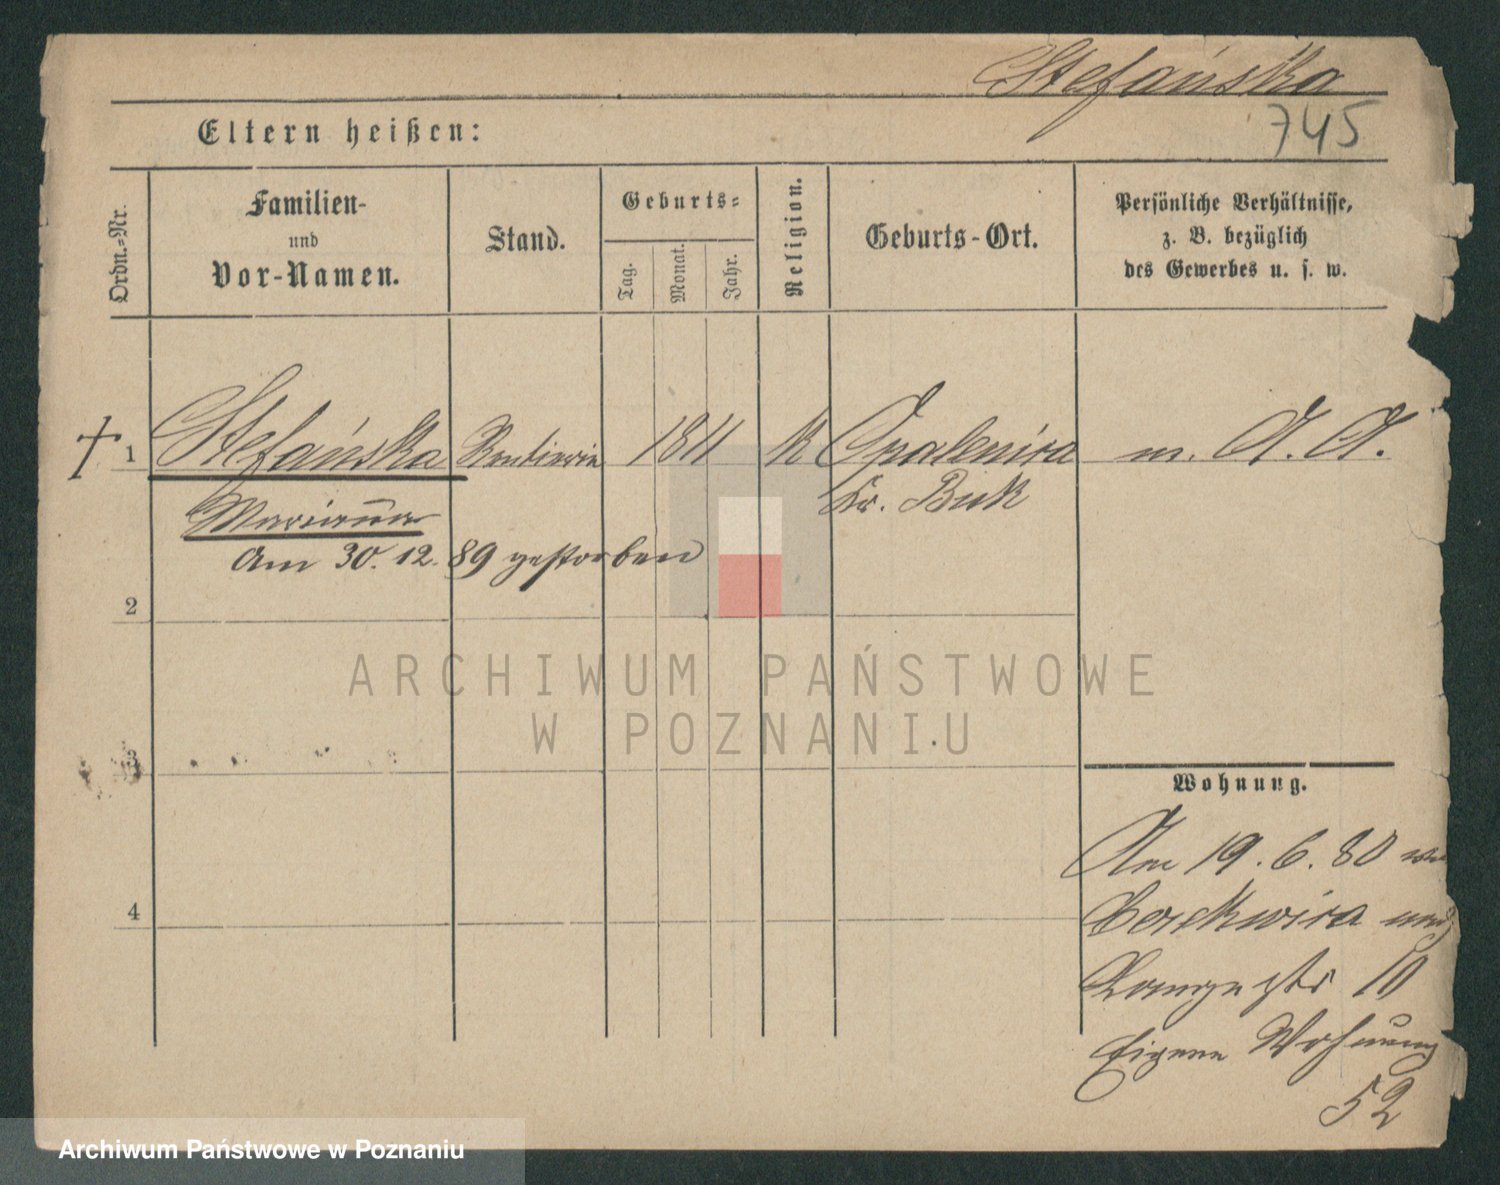 Stefańska
745
Eltern heißen:
Ordn.=Nr.
Familien-
und
Vor-Namen.
Stand.
Geburts=
Tag.
Monat.
Jahr.
Religion.
Geburts-Ort.
Persönliche Verhältnisse,
z. B. bezüglich
des Gewerbes u. s. w.
† 1 Stefańska Rentierin 1811 K Opalenica m. A. A.
Marianna Kr. Buk
Am 30. 12. 89 gestorben
2
ARCHIWUM PAŃSTWOWE
W POZNANIU
3
Wohnung.
Am 19. 6. 80
4
Langestr 10
Eigene Wohnung
52
Archiwum Państwowe w Poznaniu